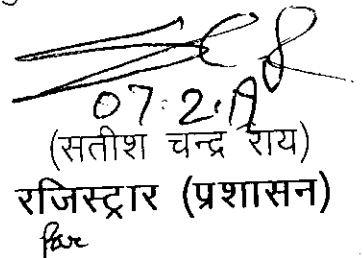 07.2.19
(सतीश चन्द्र राय)
रजिस्ट्रार (प्रशासन)